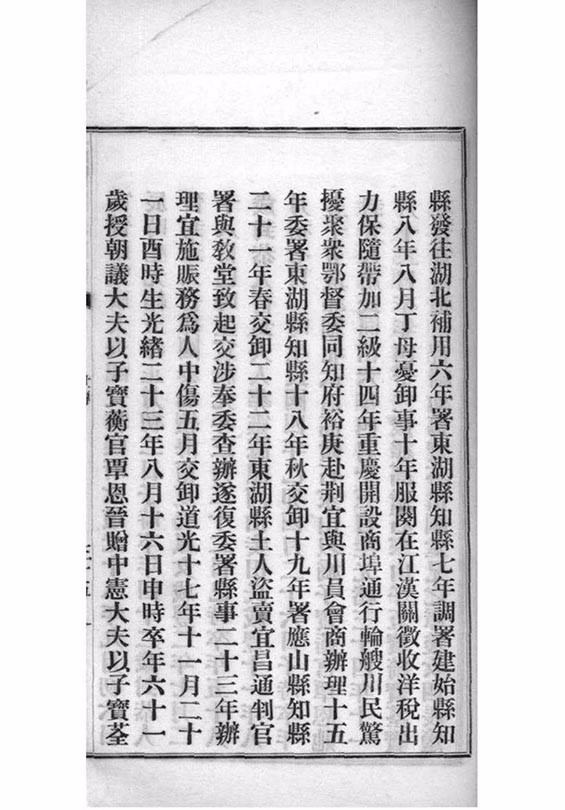 縣發往湖北補用六年署東湖縣知縣七年調署建始縣知
縣八年八月丁母憂卸事十年服闋在江漢關徵收洋稅出
力保隨帶加二級十四年重慶開設商埠通行輪艘川民驚
擾聚衆鄂督委同知府裕庚赴荆宜與川員會商辦理十五
年委署東湖縣知縣十八年秋交卸十九年署應山縣知縣
二十一年春交卸二十二年東湖縣土人盜賣宜昌通判官
署與教堂致起交涉奉委查辦遂復委署縣事二十三年辦
理宜施賑務爲人中傷五月交卸道光十七年十一月二十
一日酉時生光緒二十三年八月十六日申時卒年六十一
歲授朝議大夫以子寶蘅官覃恩晉贈中憲大夫以子寶荃